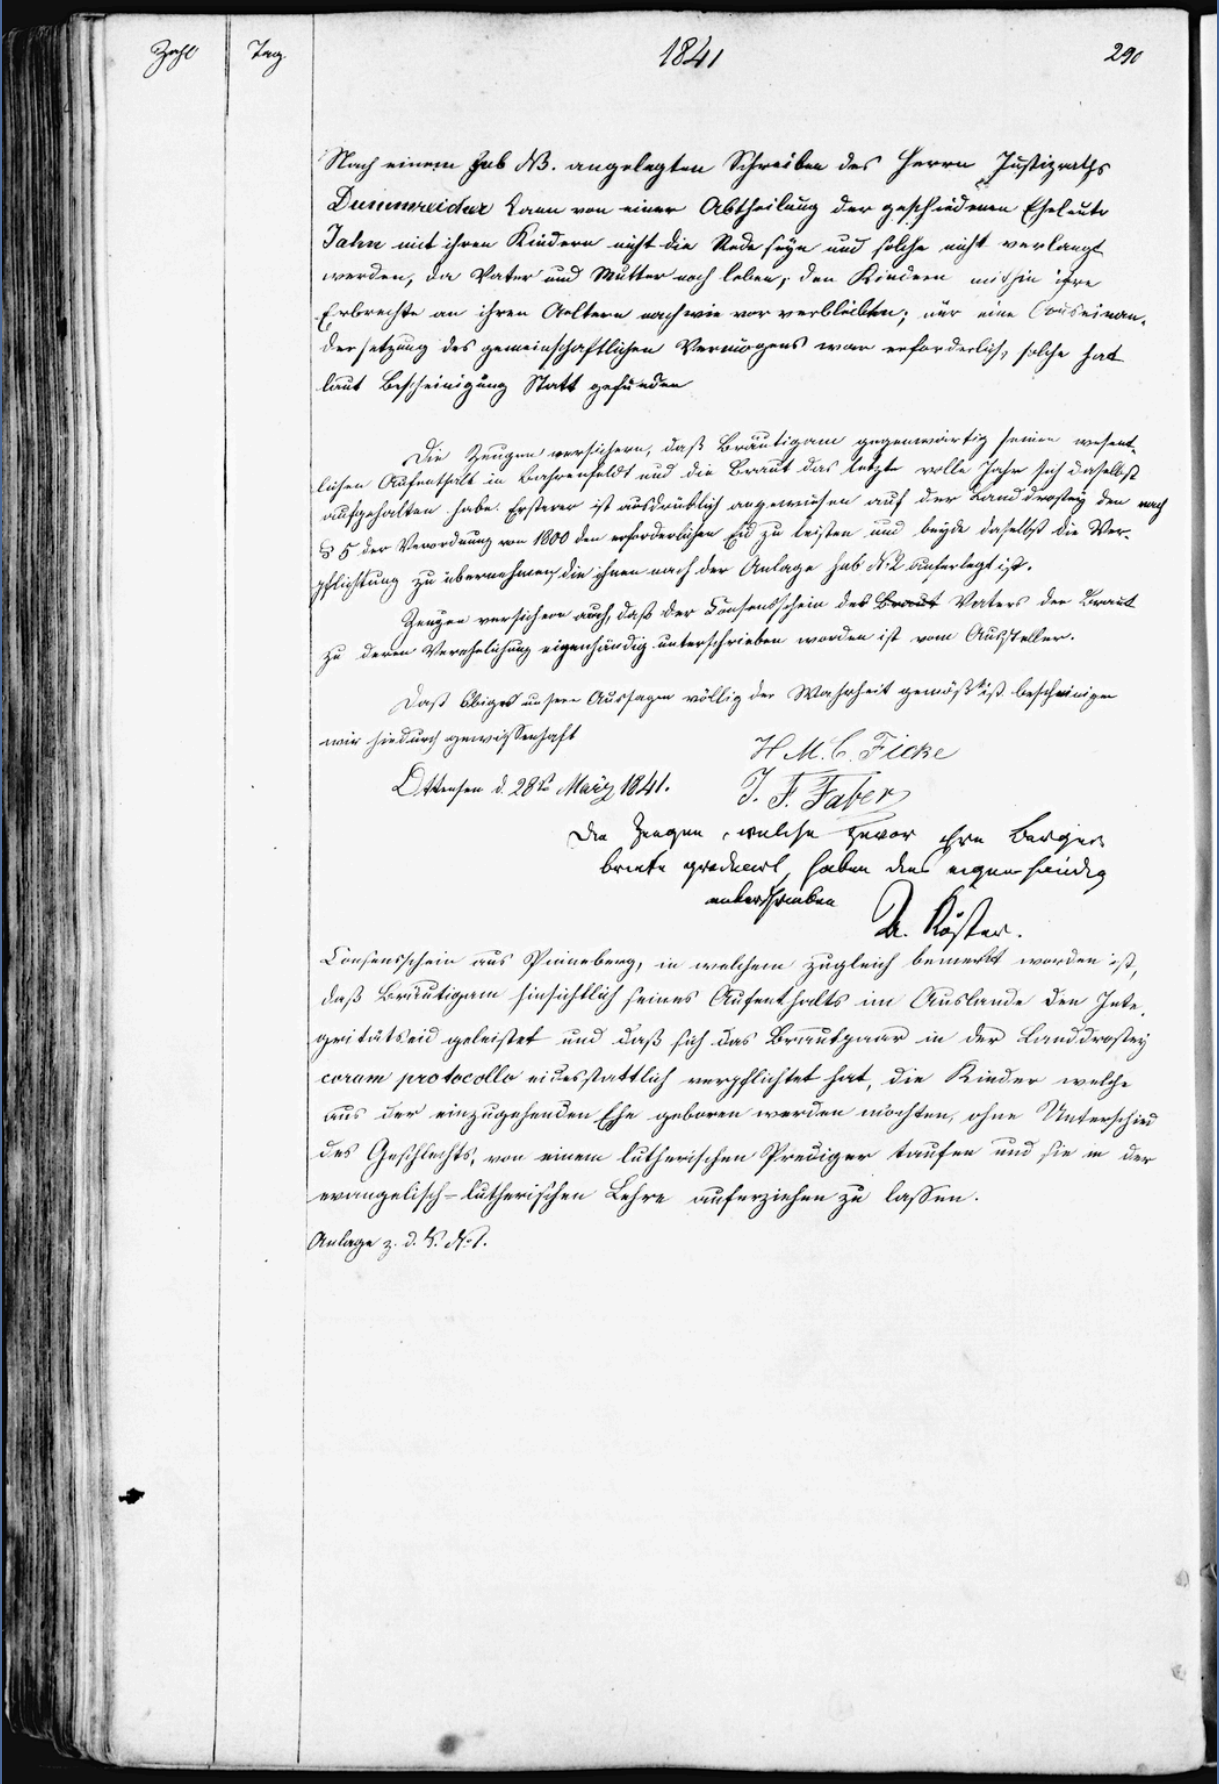 Zahl Tag 1841 290
Nach einem sub N3. angelegten Schreiben des Herrn Justizraths
Dummreicher kann von einer Abtheilung der geschiedenen Eheleute
Jahn mit ihren Kindern nicht die Rede seyn und solche nicht verlangt
werden, da Vater und Mutter noch leben, den Kindern mithin ihre
Erbrechte an ihren Aeltern nach wie vor verbleiben; nur eine Auseinan-
dersetzung des gemeinschaftlichen Vermögens war erforderlich, solche hat
laut Bescheinigung Statt gefunden
Die Zeugen versichern, daß Bräutigam gegenwärtig seinen wesent-
lichen Aufenthalt in Bahrenfeldt und die Braut das letzte volle Jahr sich daselbst
aufgehalten habe. Ersterer ist ausdrücklich angewiesen auf der Landdrostey den nach
§ 5 der Verordnung von 1800 den erforderlichen Eid zu leisten und beyde daselbst die Ver-
pflichtung zu übernehmen, die ihnen nach der Anlage sub N.2 auferlegt ist.
Zeugen versichern auch, daß der Consensschein des Braut Vaters der Braut
zu deren Verehelichung eigenhändig unterschrieben worden ist vom Aussteller.
Daß Obiges unsere Aussagen völlig der Wahrheit gemäß ist bescheinigen
wir hiedurch gewissenhaft
H. M. C. Ficke
Ottensen d. 28st März 1841.
J. F. Faber
Die Zeugen, welche zuvor ihre Bürger
briefe producirt, haben dies eigenhändig
unterschrieben
Köster.
Consensschein aus Pinneberg, in welchem zugleich bemerkt worden ist,
daß Bräutigam hinsichtlich seines Aufenthalts im Auslande den Inte-
gritätseid geleistet und daß sich das Brautpaar in der Landdrostey
coram protocollo eidesstattlich verpflichtet hat, die Kinder welche
aus der einzugehenden Ehe geboren werden möchten, ohne Unterschied
des Geschlechts, von einem lutherischen Prediger taufen und sie in der
evangelisch-lutherischen Lehre auferziehen zu lassen.
Anlage z. d. S. No 1.